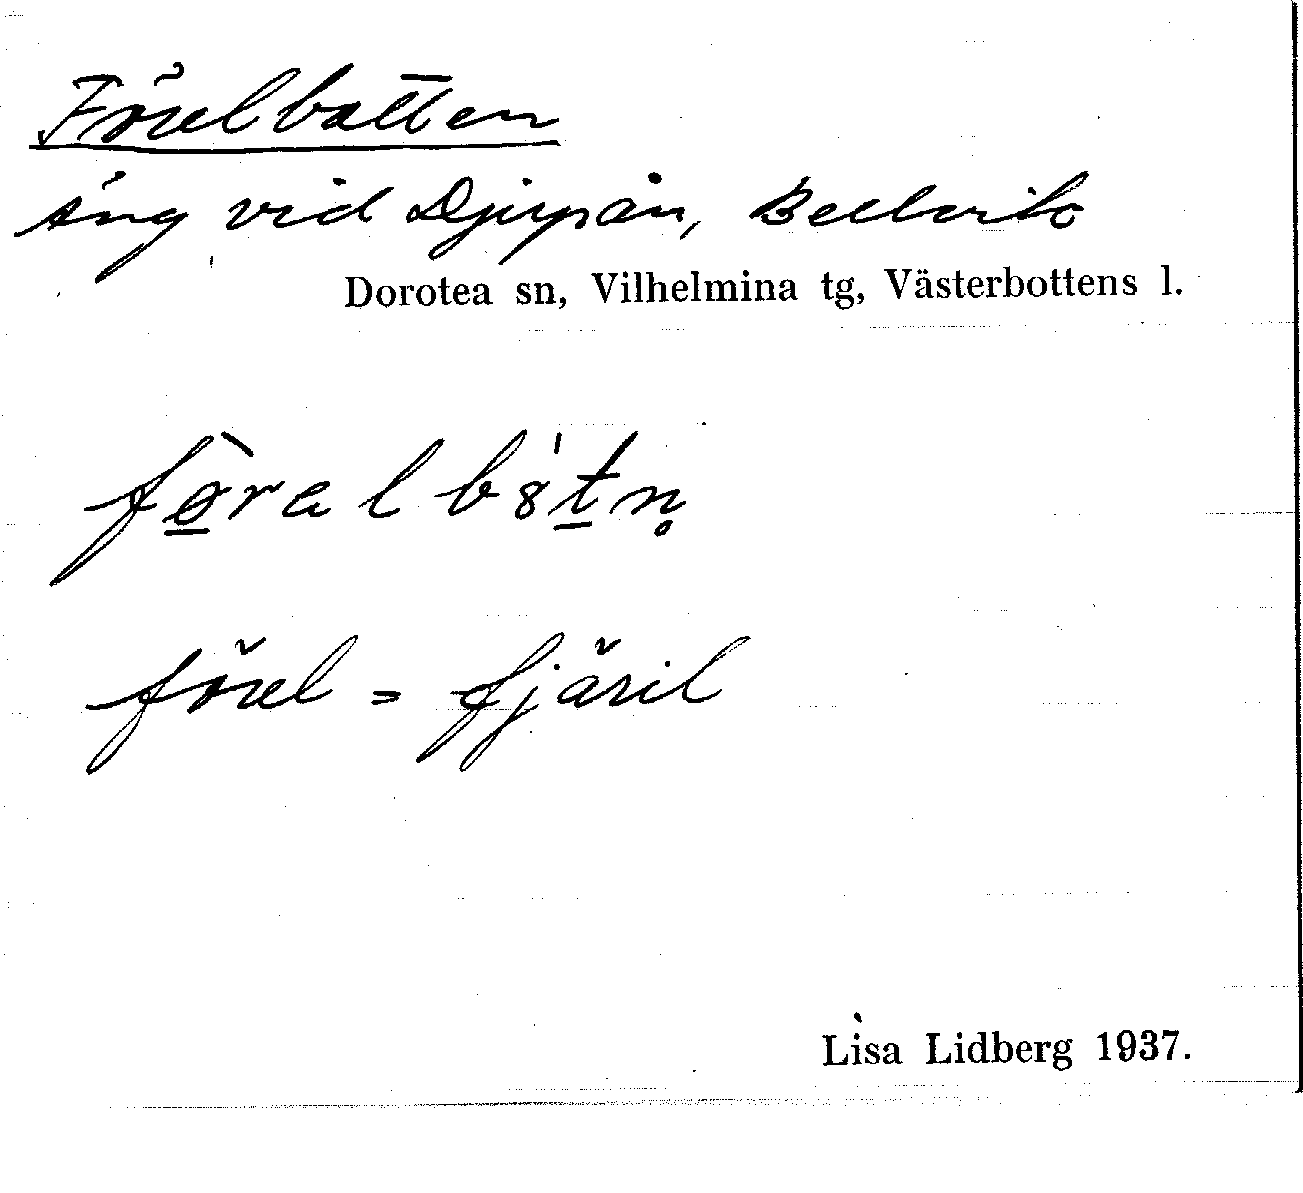 Förelbotten
äng vid Djupån, Bellvik
Dorotea sn, Vilhelmina tg, Västerbottens l.
fø̱̀ralb8̍ṯn̥
förel = fjäril
Lisa Lidberg 1937.